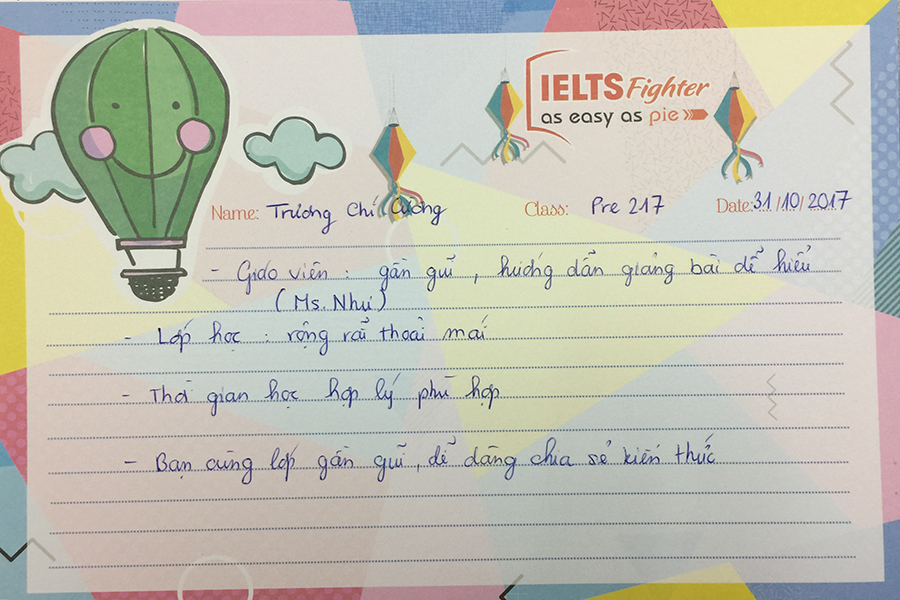 IELTS Fighter
as easy as pie
Name: Trương Chí Cường Class: Pre 217 Date: 31/10/2017
- Giáo viên : gần gũi , hướng dẫn giảng bài dễ hiểu
( Ms. Như )
- Lớp học : rộng rãi thoải mái
- Thời gian học hợp lý phù hợp
- Bạn cùng lớp gần gũi, dễ dàng chia sẻ kiến thức